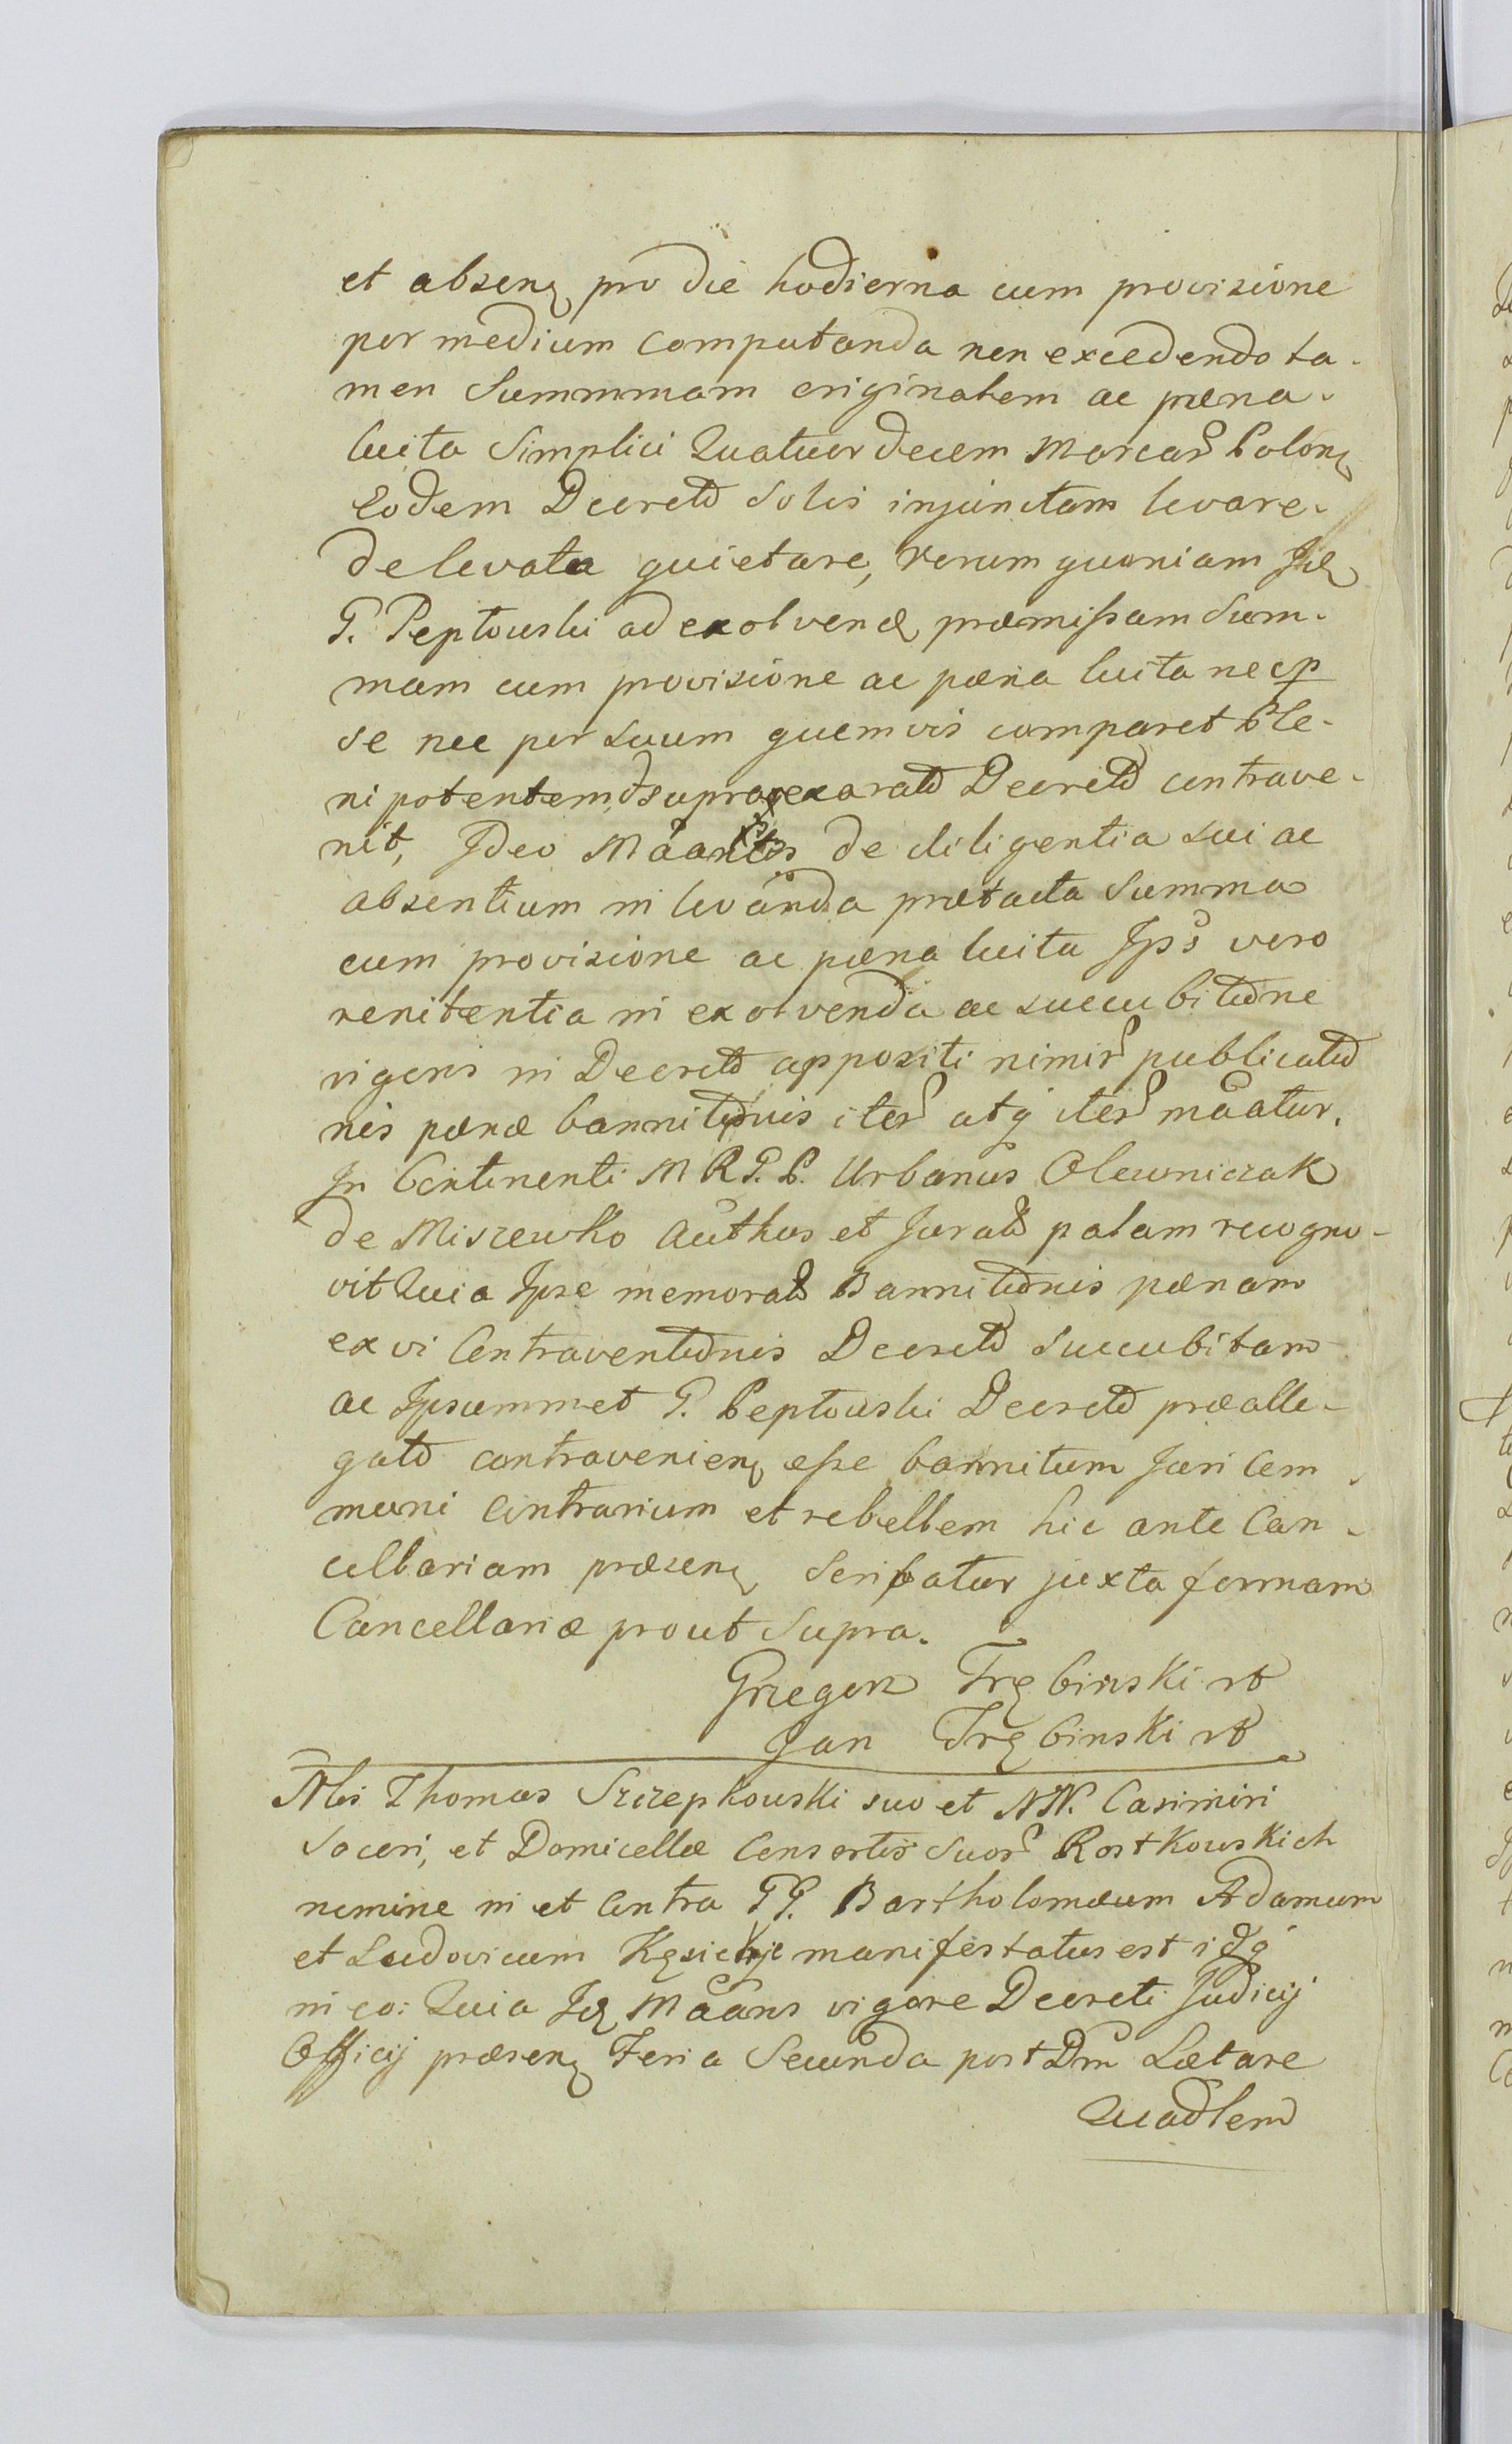 et absenꝫ pro die hodierna cum provisione
per medium computanda non excedendo ta-
men Summmam originalem ac pæna
luita Simplici Quatuordecem Marcar Polonꝫ
Eodem Decreto Solis injunctam levare
de levata quietare, verum quoniam
G. Peptowski ad exolvend præmissam Sum-
mam cum provisione ac pæna luita nec p
se nec per suum quemvis comparet Ple-
nipotentem supra exarato Decreto contrave-
nit, Ideo Māans de diligentia sui ac
absentium in levanda prætacta Summa
cum provisione ac pæna luita Ips vero
renitentia in exolvenda ac succubitione
vigens in Decreto appositi nimir publicatio
nis pænæ bannitionis iter atq iter māatur.
In Continenti M R G. P. Urbanus Olewniczak
de Miszewko Authus et Jurato palam recogno-
vit Quia Ipse memorato Bannitionis pænam
ex vi Contraventionis Decreto Succubitam
ac Ipsummet G. Peptowski Decreto præalle-
gato contravenienꝫ esse bannitum Juri Com
muni Contrarium et rebellem hic ante Can-
cellariam præsenꝫ Scribatur juxta formam
Cancellariæ prout Supra.
Grzegorz Trębinski
Jan Trębinski
Nblis Thomas Szczepkowski suo et NN. Casimiri
Soceri, et Domicellæ Consortis Suor Rostkowskich
nomine in et Contra GG. Bartholomæum Adamum
et Ludovicum manifestatus est idq
in eo: Quia Id Māans vigore Decreti Judicij
Officij præsenꝫ Feria Secunda post Dm̄ Lætare
Quadlem